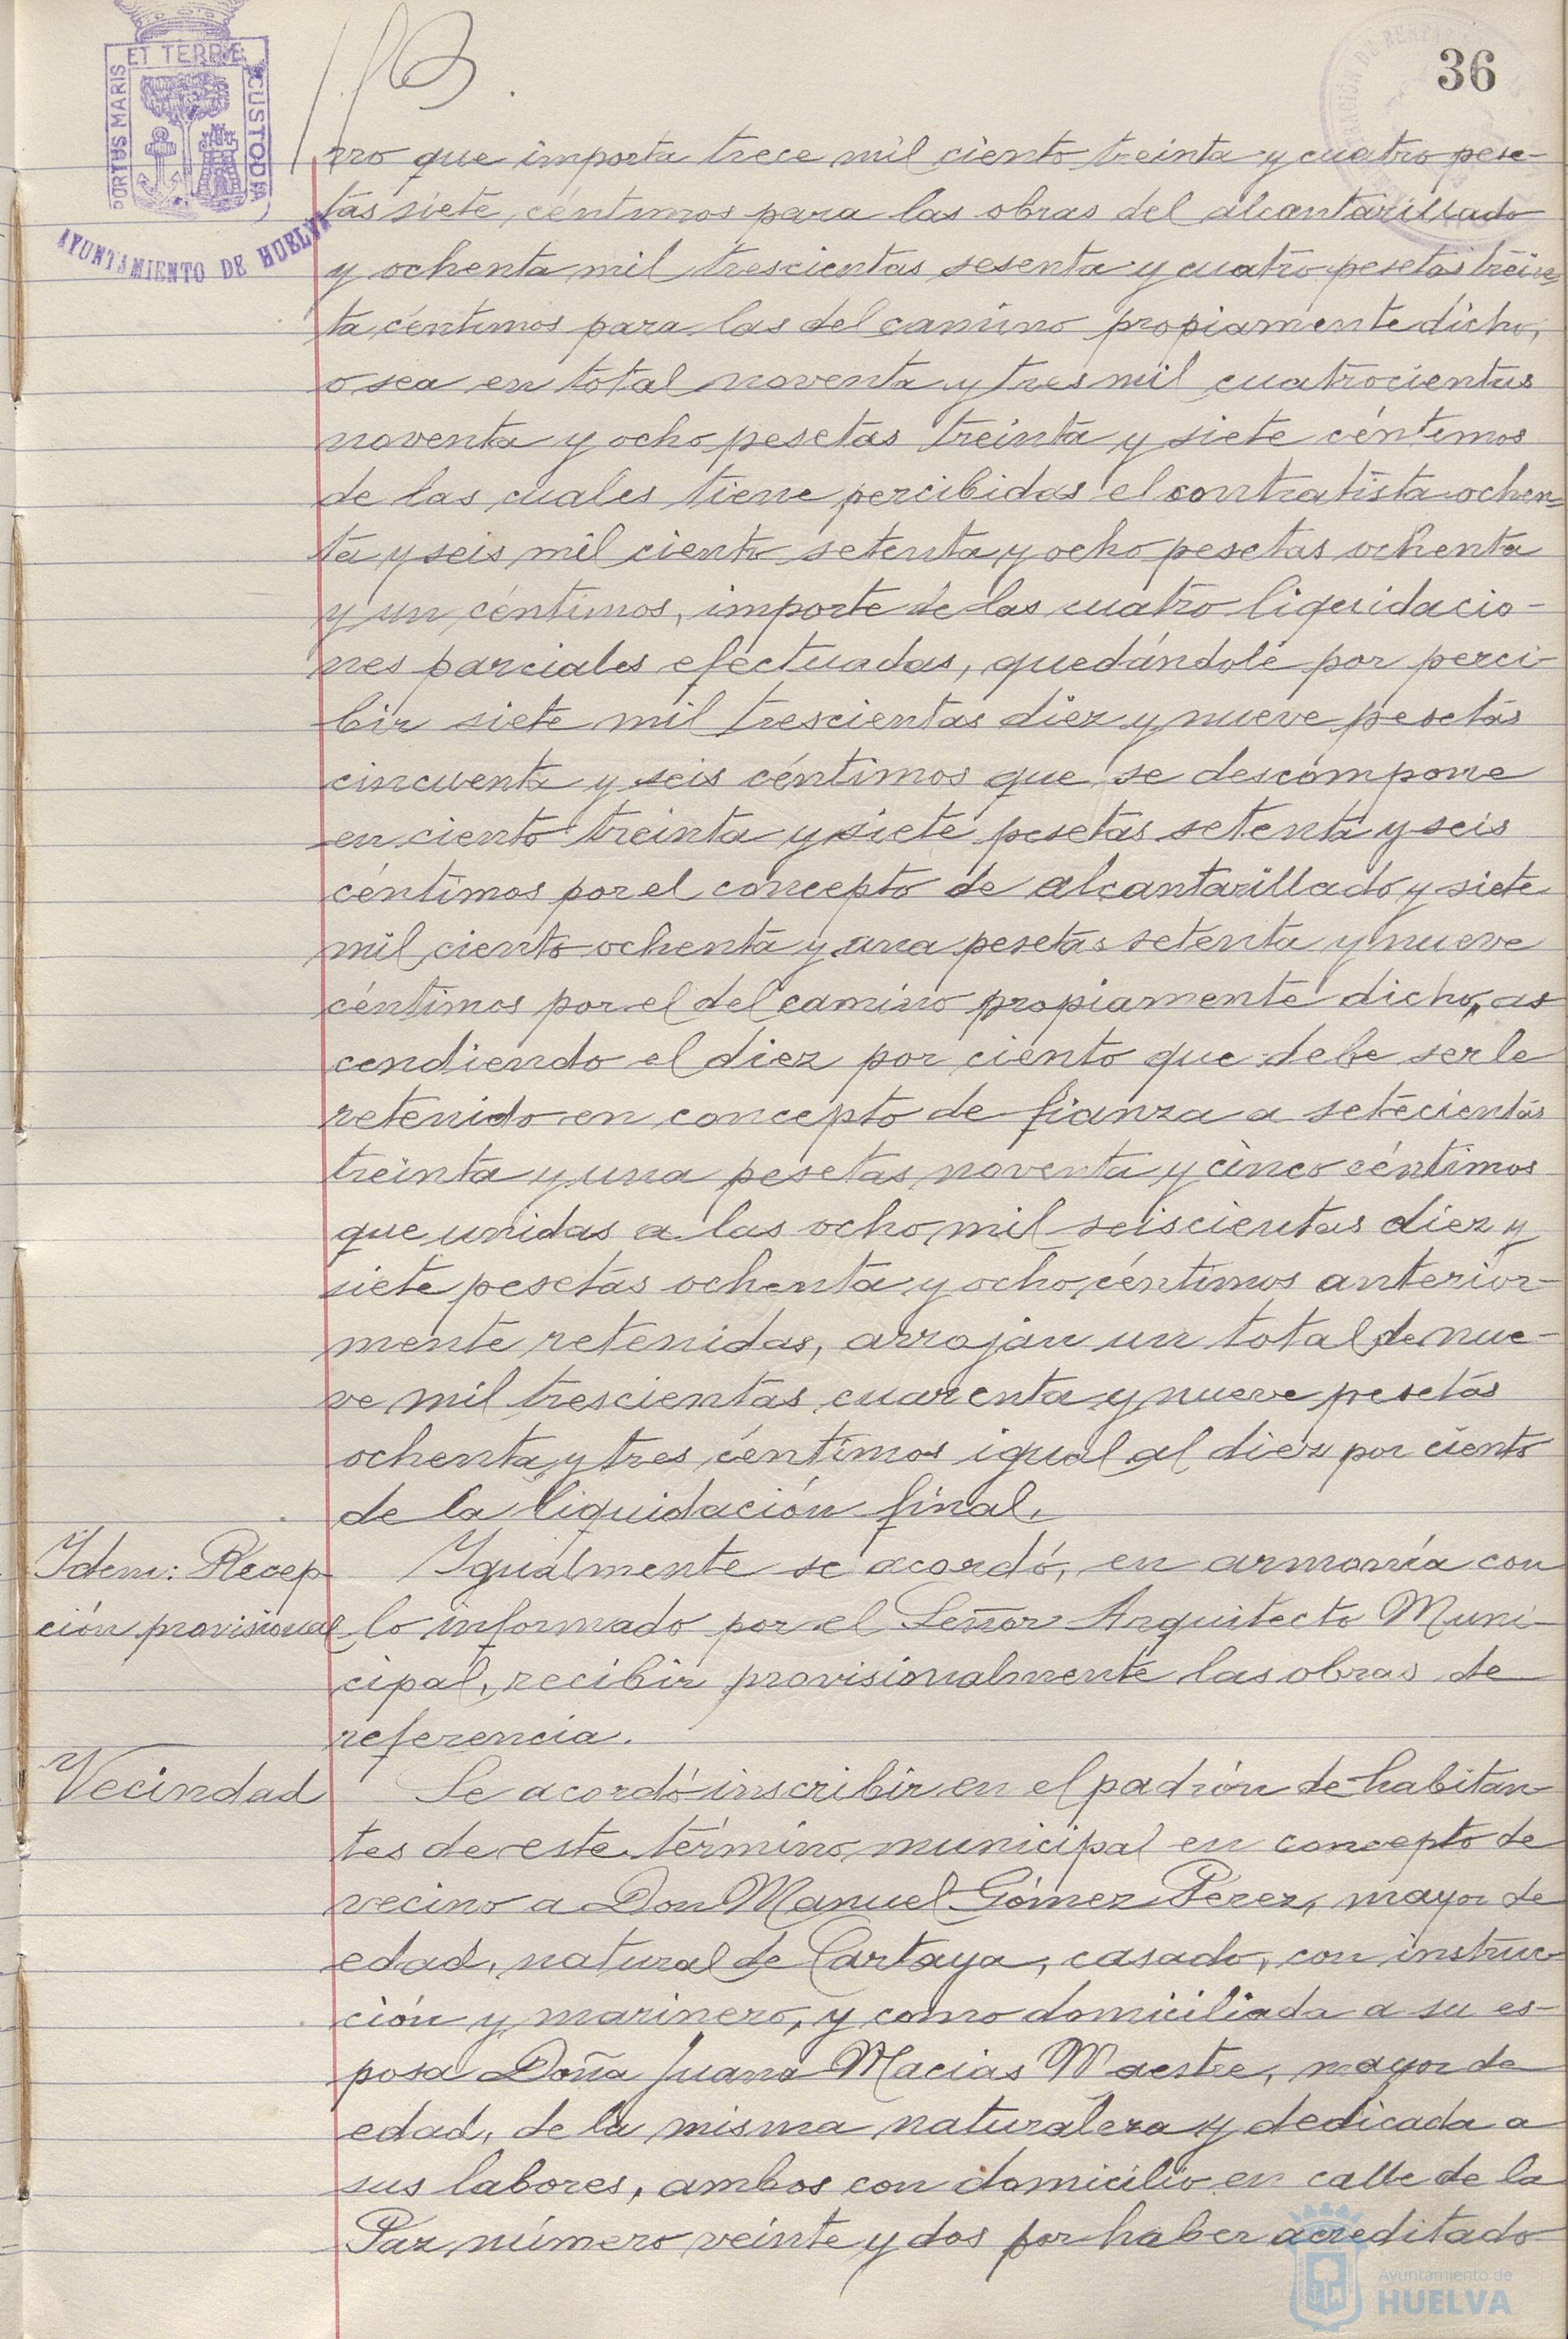 36
PORTUS MARIS
ET TERRE
CUSTODIA
AYUNTAMIENTO DE HUELVA
rro que importa trece mil ciento treinta y cuatro pese-
tas siete céntimos para las obras del alcantarillado
y ochenta mil trescientas sesenta y cuatro pesetas trein-
ta céntimos para las del camino propiamente dicho,
o sea en total noventa y tres mil cuatrocientas
noventa y ocho pesetas treinta y siete céntimos
de las cuales tiene percibidas el contratista ochen-
ta y seis mil ciento setenta y ocho pesetas ochenta
y un céntimos, importe de las cuatro liquidacio-
nes parciales efectuadas, quedándole por perci-
bir siete mil trescientas diez y nueve pesetas
cincuenta y seis céntimos que se descompone
en ciento treinta y siete pesetas setenta y seis
céntimos por el concepto de alcantarillado y siete
mil ciento ochenta y una pesetas setenta y nueve
céntimos por el del camino propiamente dicho, as
cendiendo el diez por ciento que debe serle
retenido en concepto de fianza a setecientas
treinta y una pesetas noventa y cinco céntimos
que unidas a las ocho mil seiscientas diez y
siete pesetas ochenta y ocho céntimos anterior-
mente retenidas, arrojan un total de nue-
ve mil trescientas cuarenta y nueve pesetas
ochenta y tres céntimos igual al diez por ciento
de la liquidación final.
Idem: Recep
ción provisional
Igualmente se acordó, en armonía con
lo informado por el Señor Arquitecto Muni-
cipal, recibir provisionalmente las obras de
referencia.
Vecindad
Se acordó inscribir en el padrón de habitan-
tes de este término municipal en concepto de
vecino a Don Manuel Gómez Perez, mayor de
edad, natural de Cartaya, casado, con instruc-
ción y marinero, y como domiciliada a su es-
posa Doña Juana Macias Maestre, mayor de
edad, de la misma naturaleza y dedicada a
sus labores, ambos con domicilio en calle de la
Paz número veinte y dos por haber acreditado
Ayuntamiento de
HUELVA